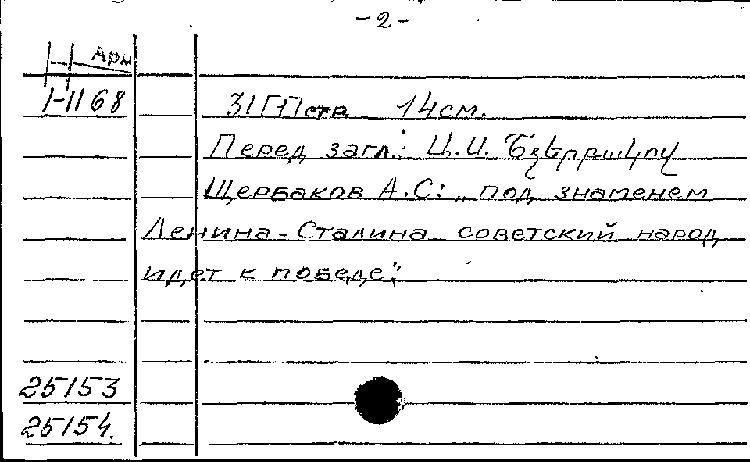 -2-
Арм
1-1168
14см.
Перед загл.: Ա.Ս. Շչերբակով
Щербаков А.С: „под знаменем
Ленина-Сталина советский народ
идет к победе";
25153
25154.